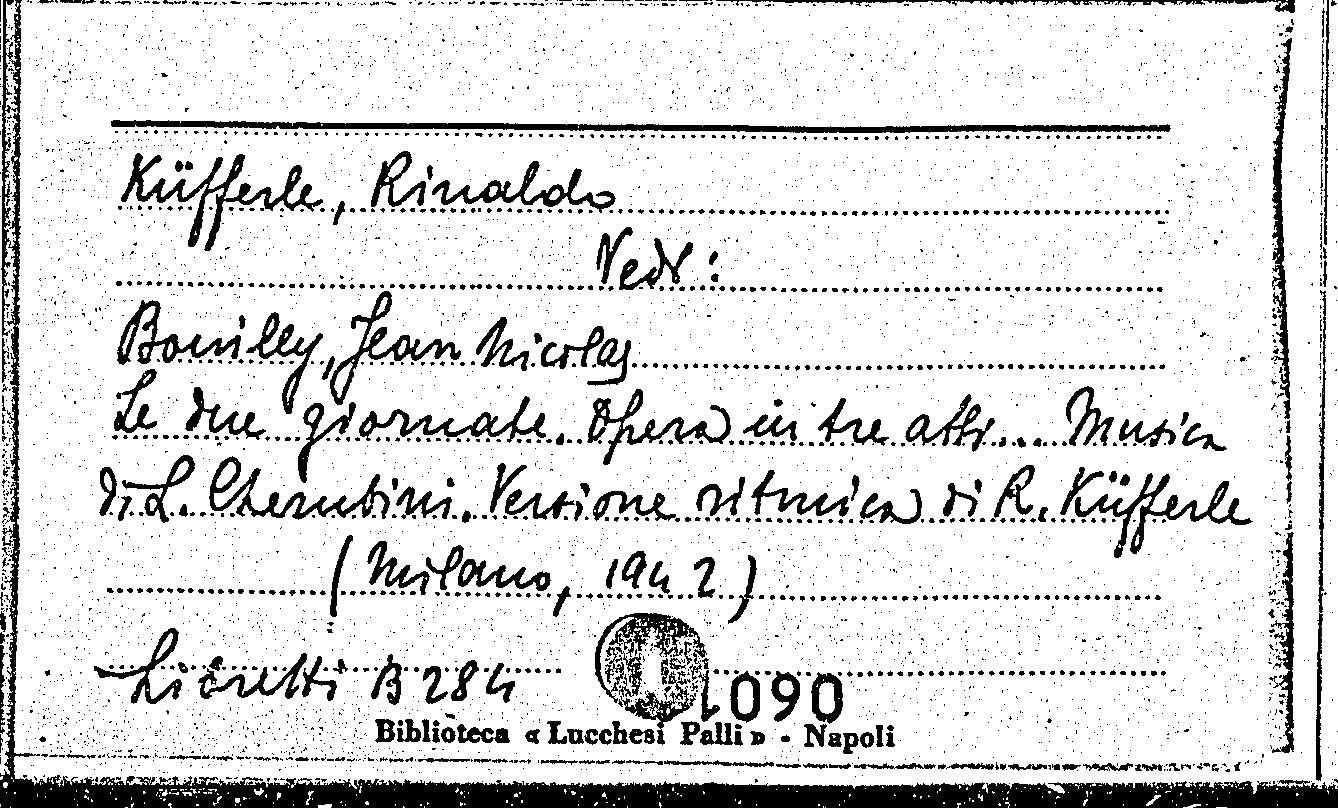 Küfferle, Rinaldo
Vedi:
Bouilly, Jean Nicolas
Le due giornate. Opera in tre atti... Musica
di L. Cherubini. Versione ritmica di R. Küfferle
(Milano, 1942)
Libretti B 284
090
Biblioteca « Lucchesi Palli » - Napoli